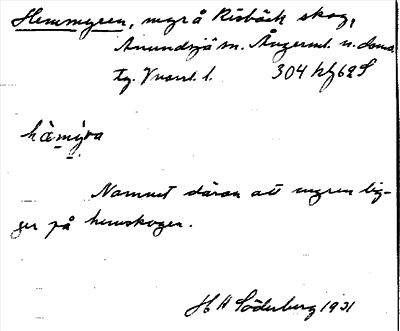 Hemmyren, myr å Risbäck skog,
Anundsjö sn. Ångerml. n. doms.
tg. Vnorrl. l. 304 hfj62S
hä̀mýra
Namnet därav att myren lig-
ger på hemskogen.
H H Söderberg 1931